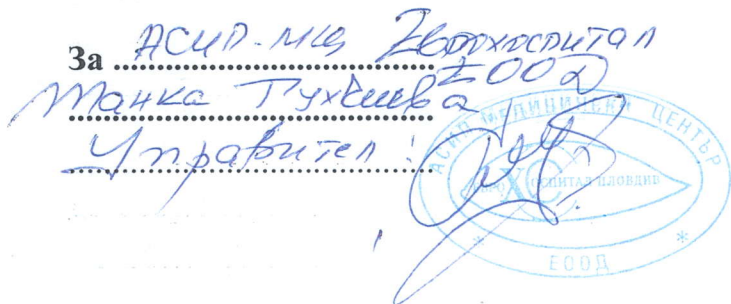 За АСИП-МЦ Еврохоспитал
ЕООД
Танка Тухчиева
Управител:
АСИМП МЕДИЦИНСКИ ЦЕНТЪР
ХОСПИТАЛ ПЛОВДИВ
* ЕООД *